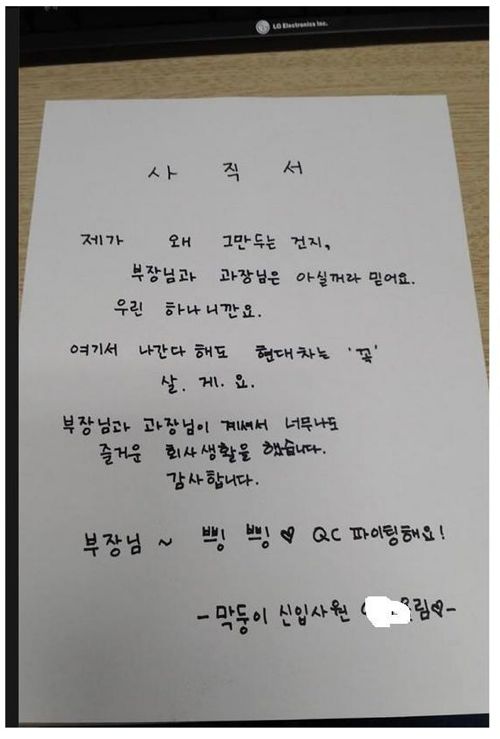 LG Electronics Inc.
사 직 서
제가 왜 그만두는 건지,
부장님과 과장님은 아실꺼라 믿어요.
우린 하나니깐요.
여기서 나간다 해도 현대차는 '꽃'
살. 게. 요.
부장님과 과장님이 계셔서 너무나도
즐거운 회사생활을 했습니다.
감사합니다.
부장님 ~ 쁘잉 쁘잉 ♥ QC 파이팅해요!
- 막둥이 신입사원 림♥-